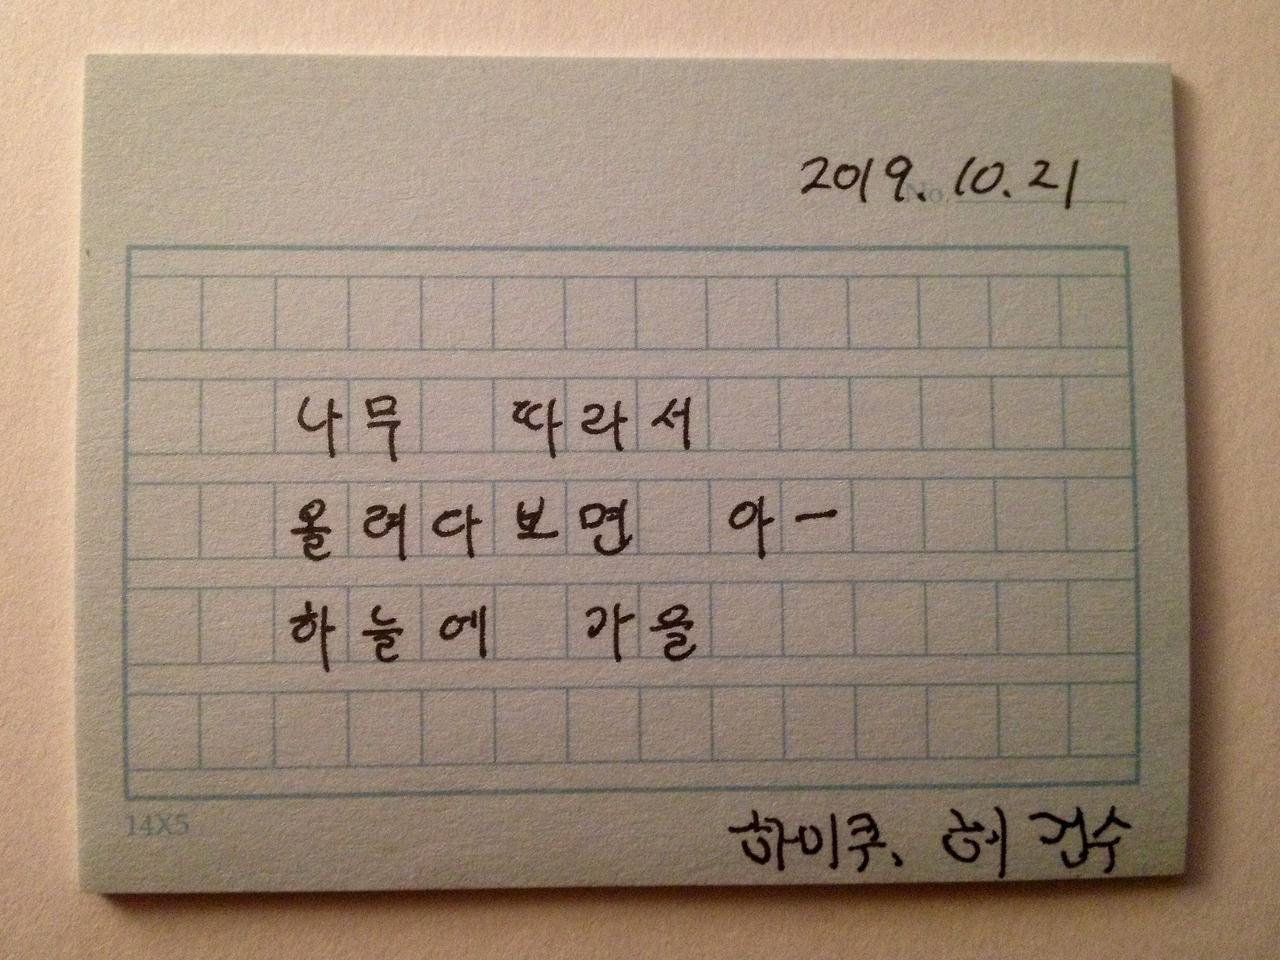 2019. 10. 21
No.
나무 따라서
올려다보면 아―
하늘에 가을
14X5
하이쿠, 허 검수